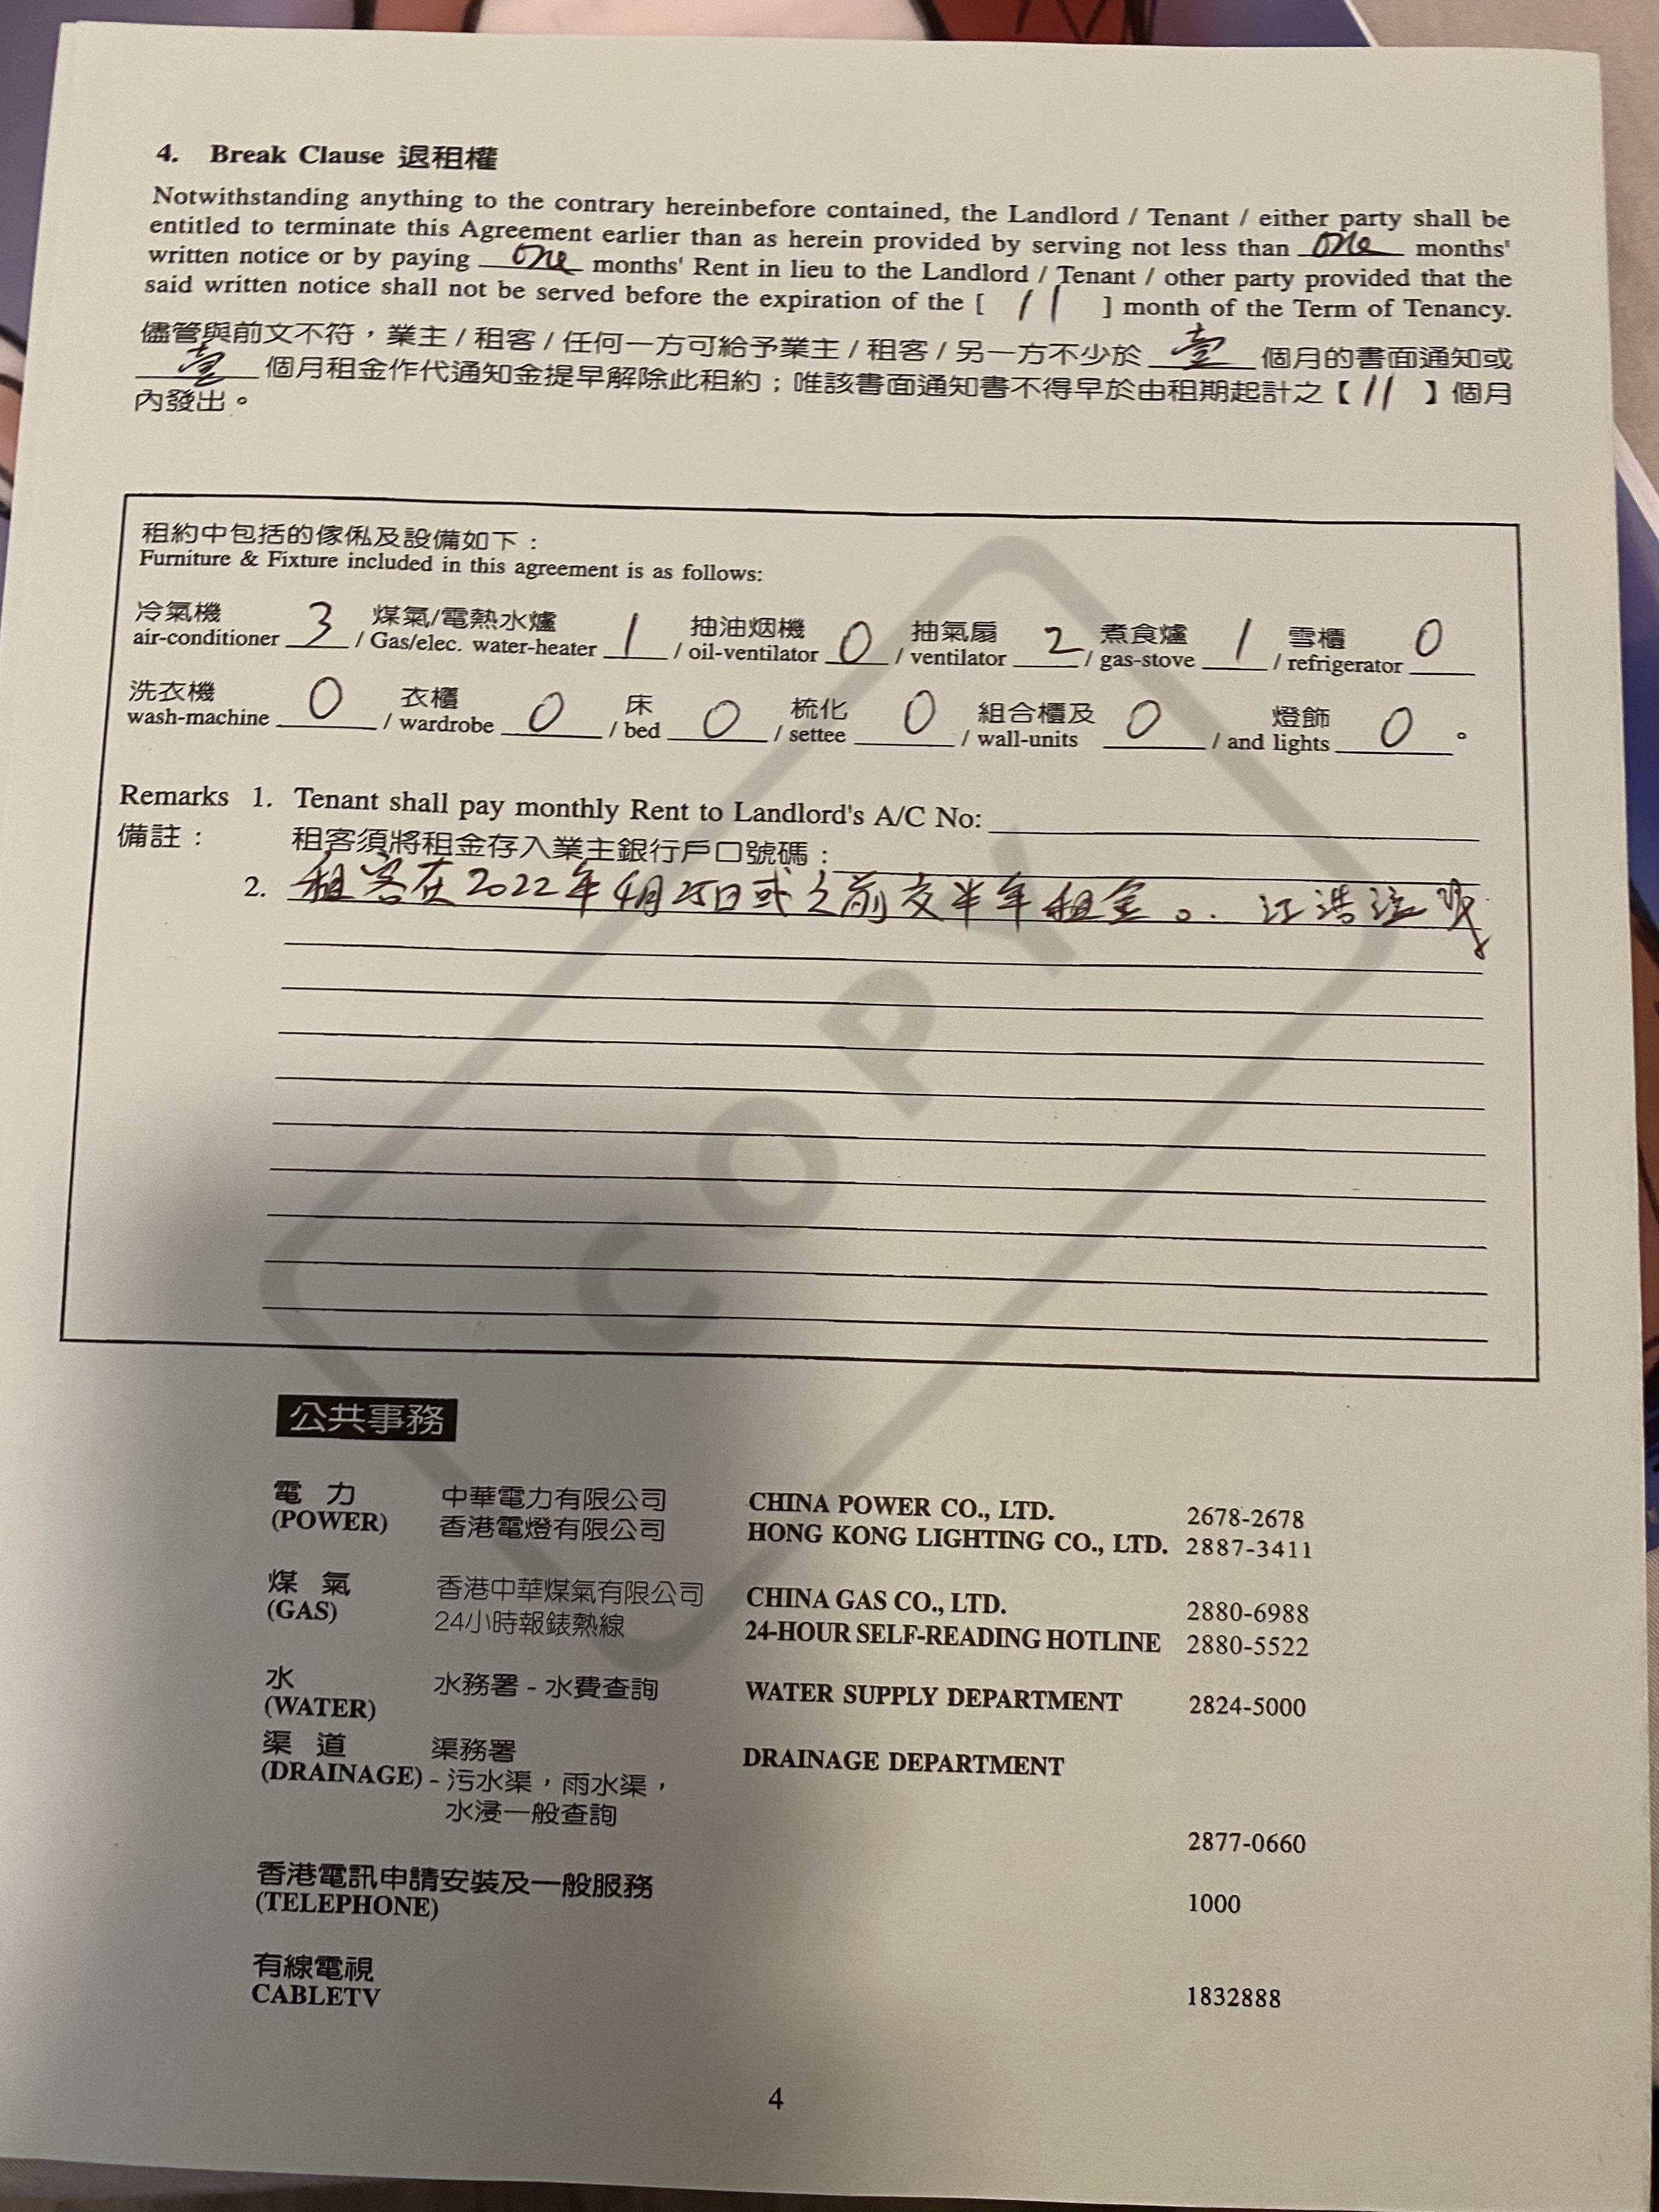 4. Break Clause 退租權
Notwithstanding anything to the contrary hereinbefore contained, the Landlord / Tenant / either party shall be
entitled to terminate this Agreement earlier than as herein provided by serving not less than one months'
written notice or by paying one months' Rent in lieu to the Landlord / Tenant / other party provided that the
said written notice shall not be served before the expiration of the [ 11 ] month of the Term of Tenancy.
儘管與前文不符，業主 / 租客 / 任何一方可給予業主 / 租客 / 另一方不少於 壹 個月的書面通知或
壹 個月租金作代通知金提早解除此租約；唯該書面通知書不得早於由租期起計之【 11 】個月
內發出。
租約中包括的傢俬及設備如下：
Furniture & Fixture included in this agreement is as follows:
冷氣機 煤氣/電熱水爐 抽油烟機 抽氣扇 煮食爐 雪櫃
air-conditioner 3 / Gas/elec. water-heater 1 / oil-ventilator 0 / ventilator 2 / gas-stove 1 / refrigerator 0
洗衣機 衣櫃 床 梳化 組合櫃及 燈飾
wash-machine 0 / wardrobe 0 / bed 0 / settee 0 / wall-units 0 / and lights 0 。
Remarks 1. Tenant shall pay monthly Rent to Landlord's A/C No:
備註： 租客須將租金存入業主銀行戶口號碼：
2. 租客在2022年4月25日或之前交半年租金。
COPY
公共事務
電 力 中華電力有限公司 CHINA POWER CO., LTD. 2678-2678
(POWER) 香港電燈有限公司 HONG KONG LIGHTING CO., LTD. 2887-3411
煤 氣 香港中華煤氣有限公司 CHINA GAS CO., LTD. 2880-6988
(GAS) 24小時報錶熱線 24-HOUR SELF-READING HOTLINE 2880-5522
水 水務署 - 水費查詢 WATER SUPPLY DEPARTMENT 2824-5000
(WATER)
渠 道 渠務署 DRAINAGE DEPARTMENT
(DRAINAGE) - 污水渠，雨水渠，
水浸一般查詢
2877-0660
香港電訊申請安裝及一般服務
(TELEPHONE) 1000
有線電視
CABLETV 1832888
4